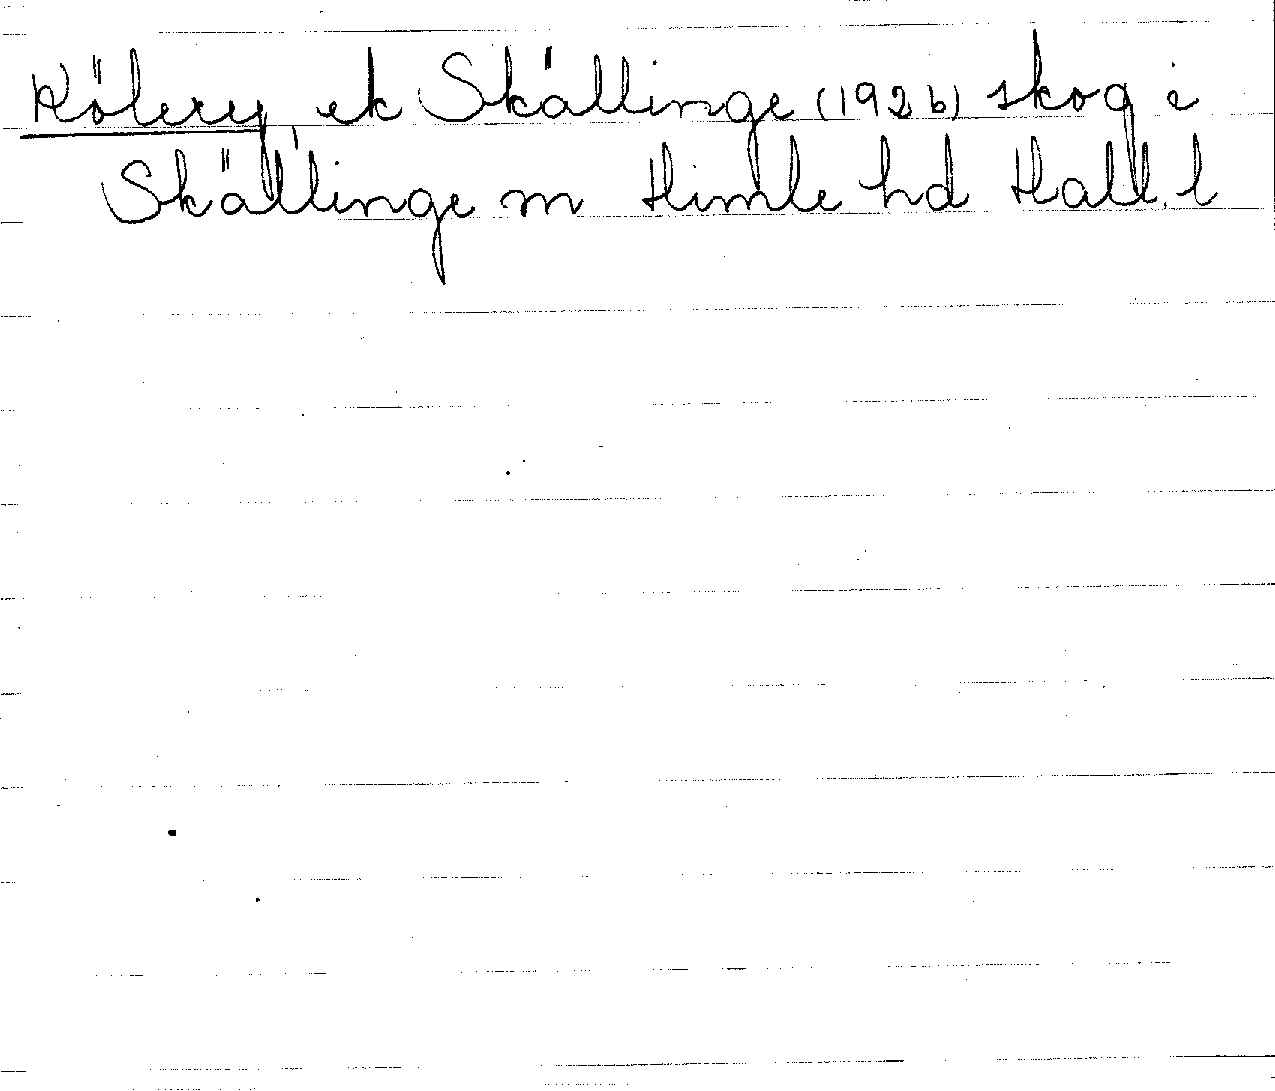 Kölery, ek Skällinge (1926) skog i
Skällinge sn Himle hd Hall. l